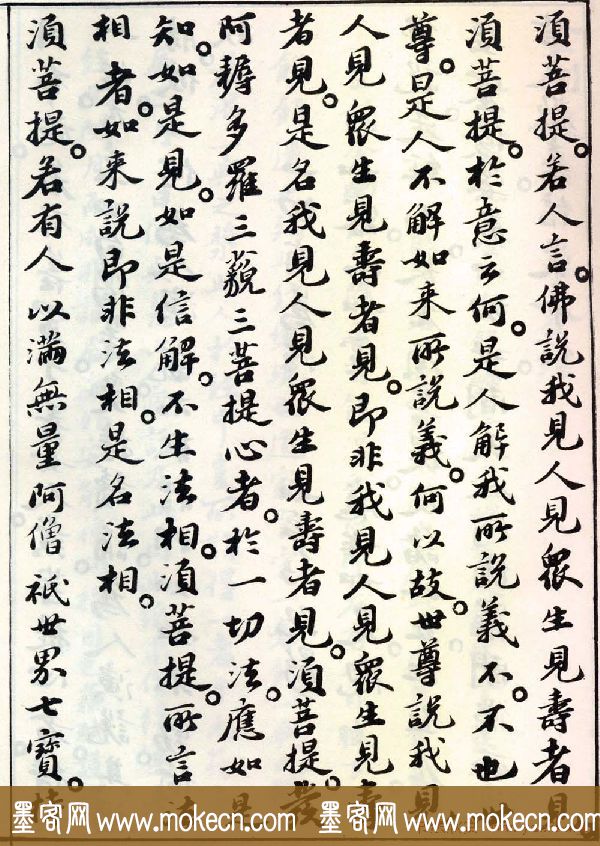 須菩提。若人言。佛說我見人見眾生見壽者見
須菩提。於意云何。是人解我所說義不。不也世
尊。是人不解如来所說義。何以故。世尊說我見
人見眾生見壽者見。即非我見人見眾生見壽
者見。是名我見人見眾生見壽者見。須菩提。發
阿耨多羅三藐三菩提心者。於一切法。應如是
知。如是見。如是信解。不生法相。須菩提。所言法
相者。如来說即非法相。是名法相。
須菩提。若有人以滿無量阿僧祇世界七寶。持
墨客网 www.mokecn.com 墨客网 www.mokecn.com